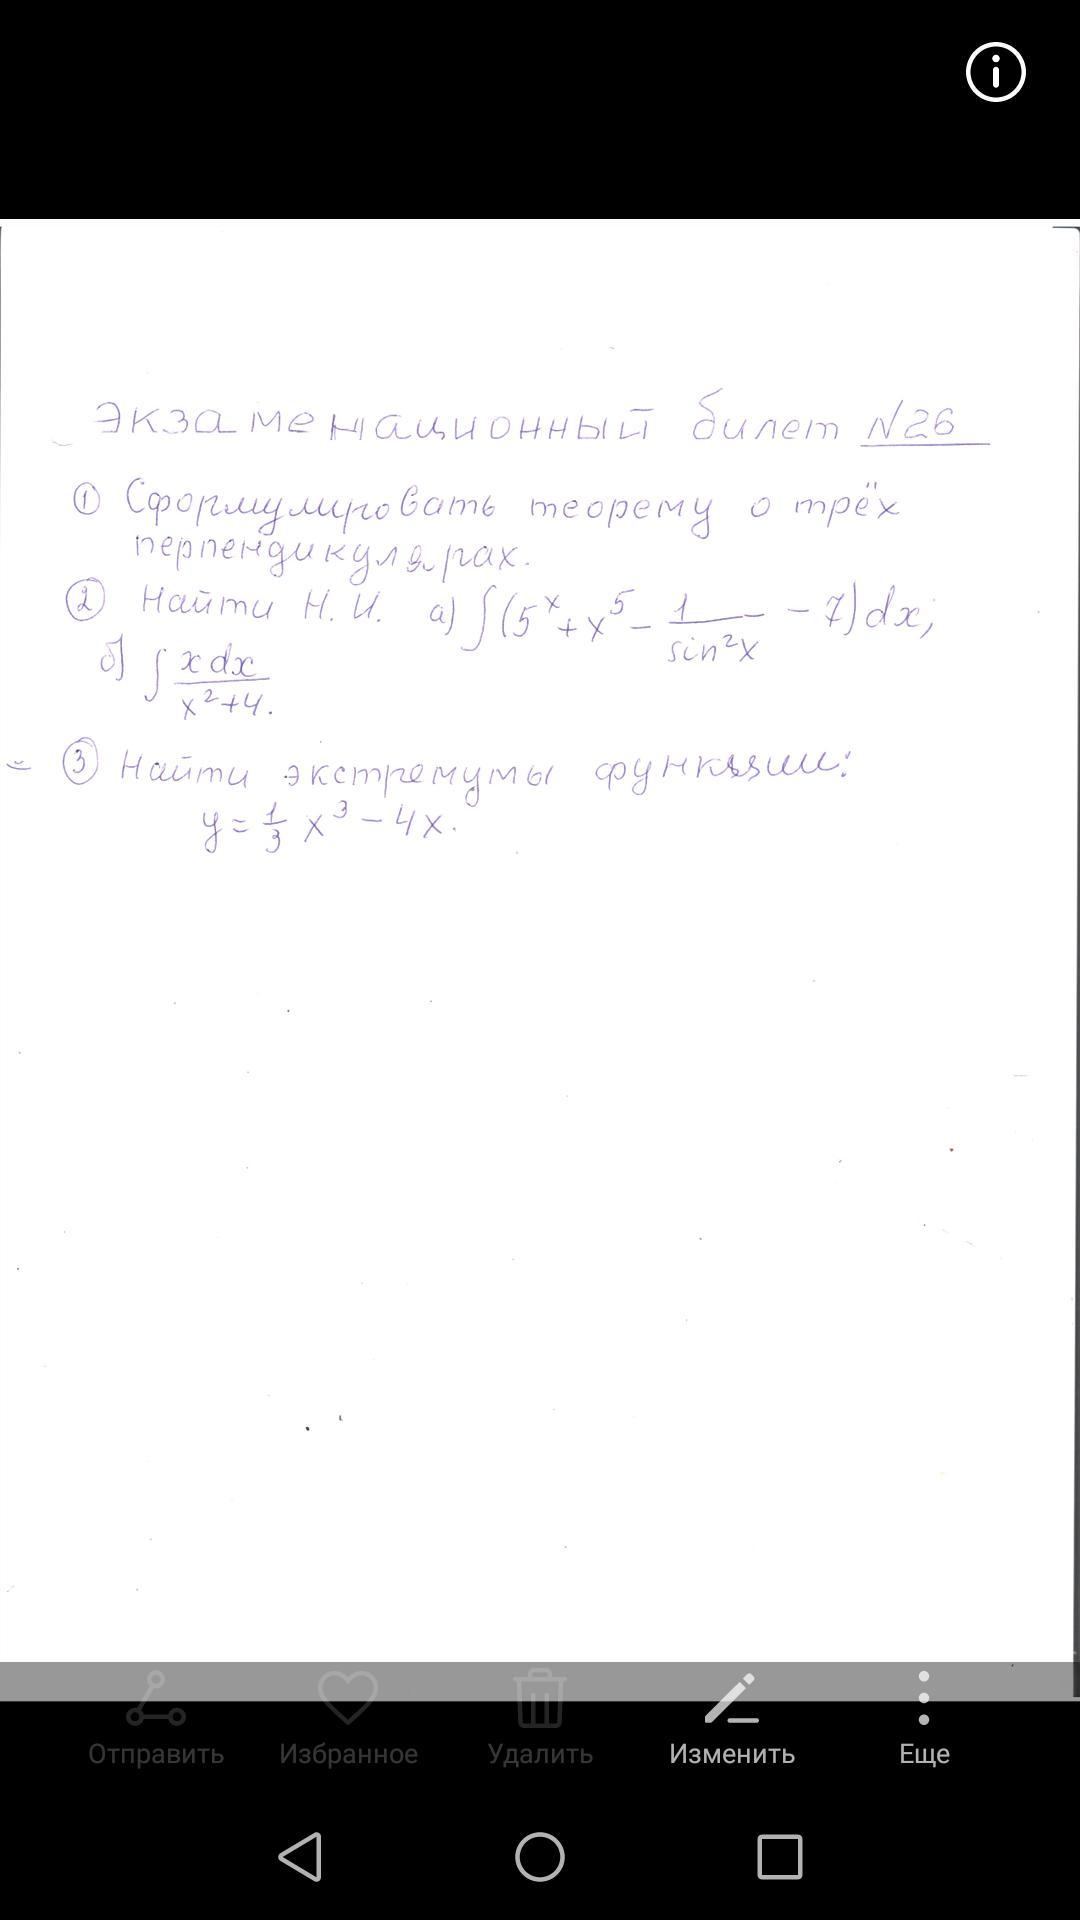 Экзаменационный билет №26
① Сформулировать теорему о трёх
перпендикулярах.
② Найти Н.И. а) ∫(5ˣ + x⁵ - 1/sin²x - 7)dx;
б) ∫ xdx/x²+4.
③ Найти экстремумы функции:
y = 1/3 x³ - 4x.
Отправить Избранное Удалить Изменить Еще